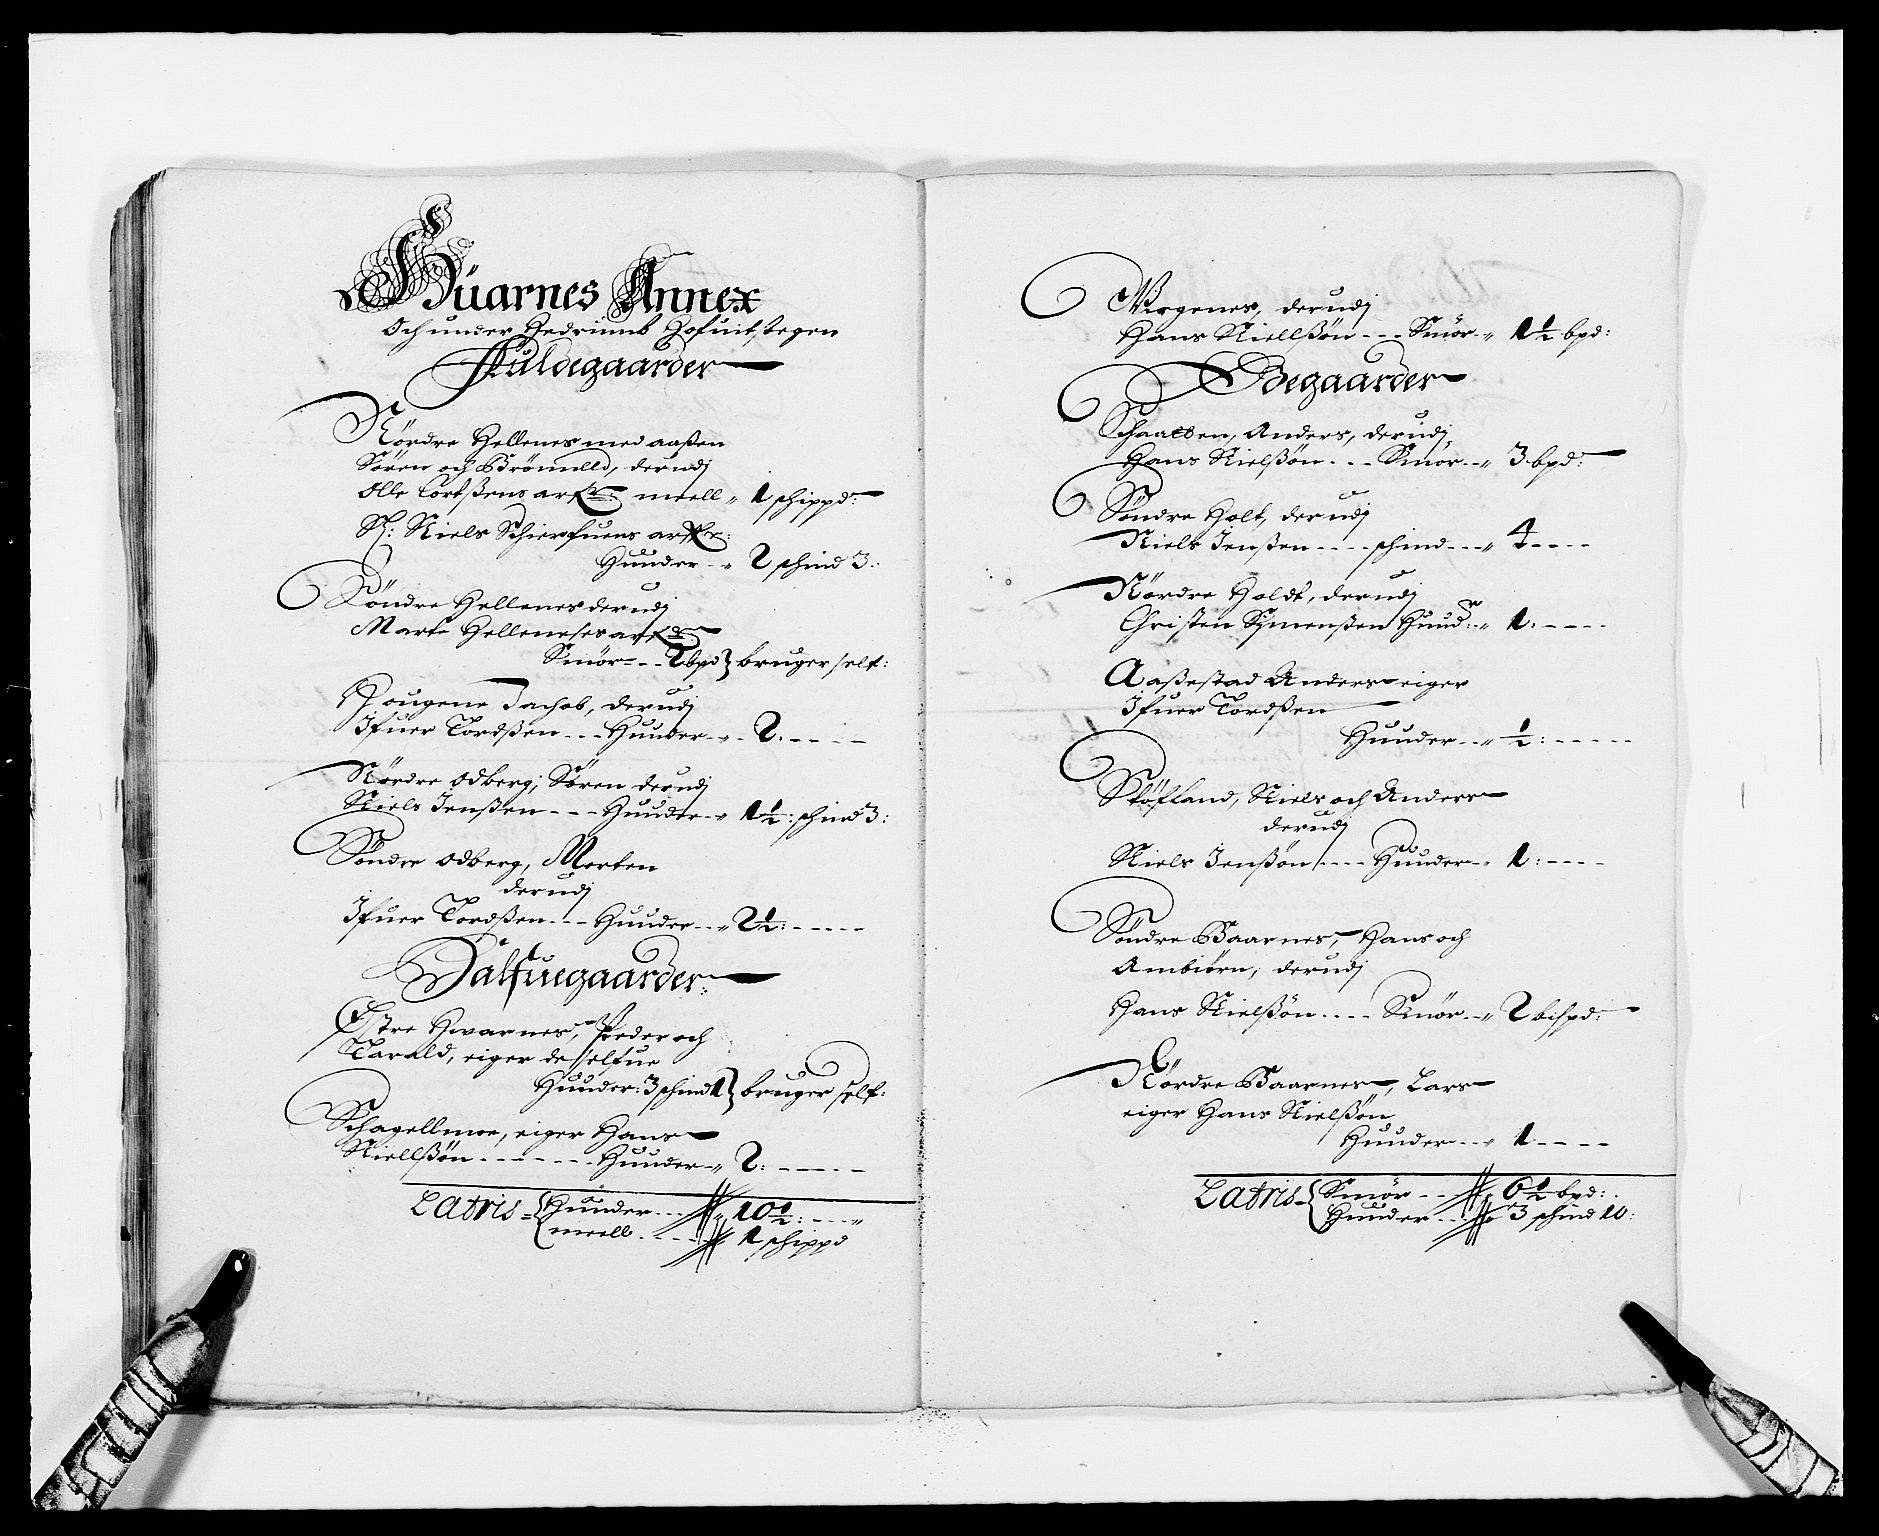 Huarnes Annex
Och under Hedrumb Hofuitstegen
Fuldegaarder
Nördre Hellenes med aaßen
Sören och Brönulld, derudj
Olle Tortßens arf: meell 1 schippd:
S: Niels Schierfuens arf:
Huuder 2 schind 3:
Söndre Hellenes derudj
Marte Helleneses arf:
Smör 2 bpd bruger self:
Hougene Jachob, derudj
Ifuer Tordßen Huuder 2:
Nördre Odberg, Sören derudj
Niels Jenßen Huuder 1½: schind 3:
Söndre Odberg, Morten
derudj
Ifuer Tordßen Huuder 2½:
Halfuegaarder:
Östre Hwarnes, Peder och
Tarald, eiger de selfue
Huuder: 3 schind 1 bruger self:
Schagellmoe, eiger Hans
Niellßön Huuder 2:
Latris Huuder 10½:
meell 1 schippd
Mogenes, derudj
Hans Niellßön Smör 1½ bpd:
Ödegaarder
Schaatten, Anders, derudj,
Hans Nielßön Smör 3 bpd:
Söndre Holt, derudj
Niels Jenßen schind 4
Nördre Holdt, derudj
Christen Symenßen Huud: 1:
Aaßestad Anders eiger
Ifuer Tordßen
Huuder ½:
Sköfland, Niels och Anders
derudj
Niels Jenßön Huuder 1:
Söndre Baarnes, Hans och
Ambiörn, derudj
Hans Nielßön Smör 2 bispd:
Nördre Baarnes, Lars
eiger Hans Nielßön
Huuder 1
Latris Smör 6½ bpd:
Huuder 3 schind 10: